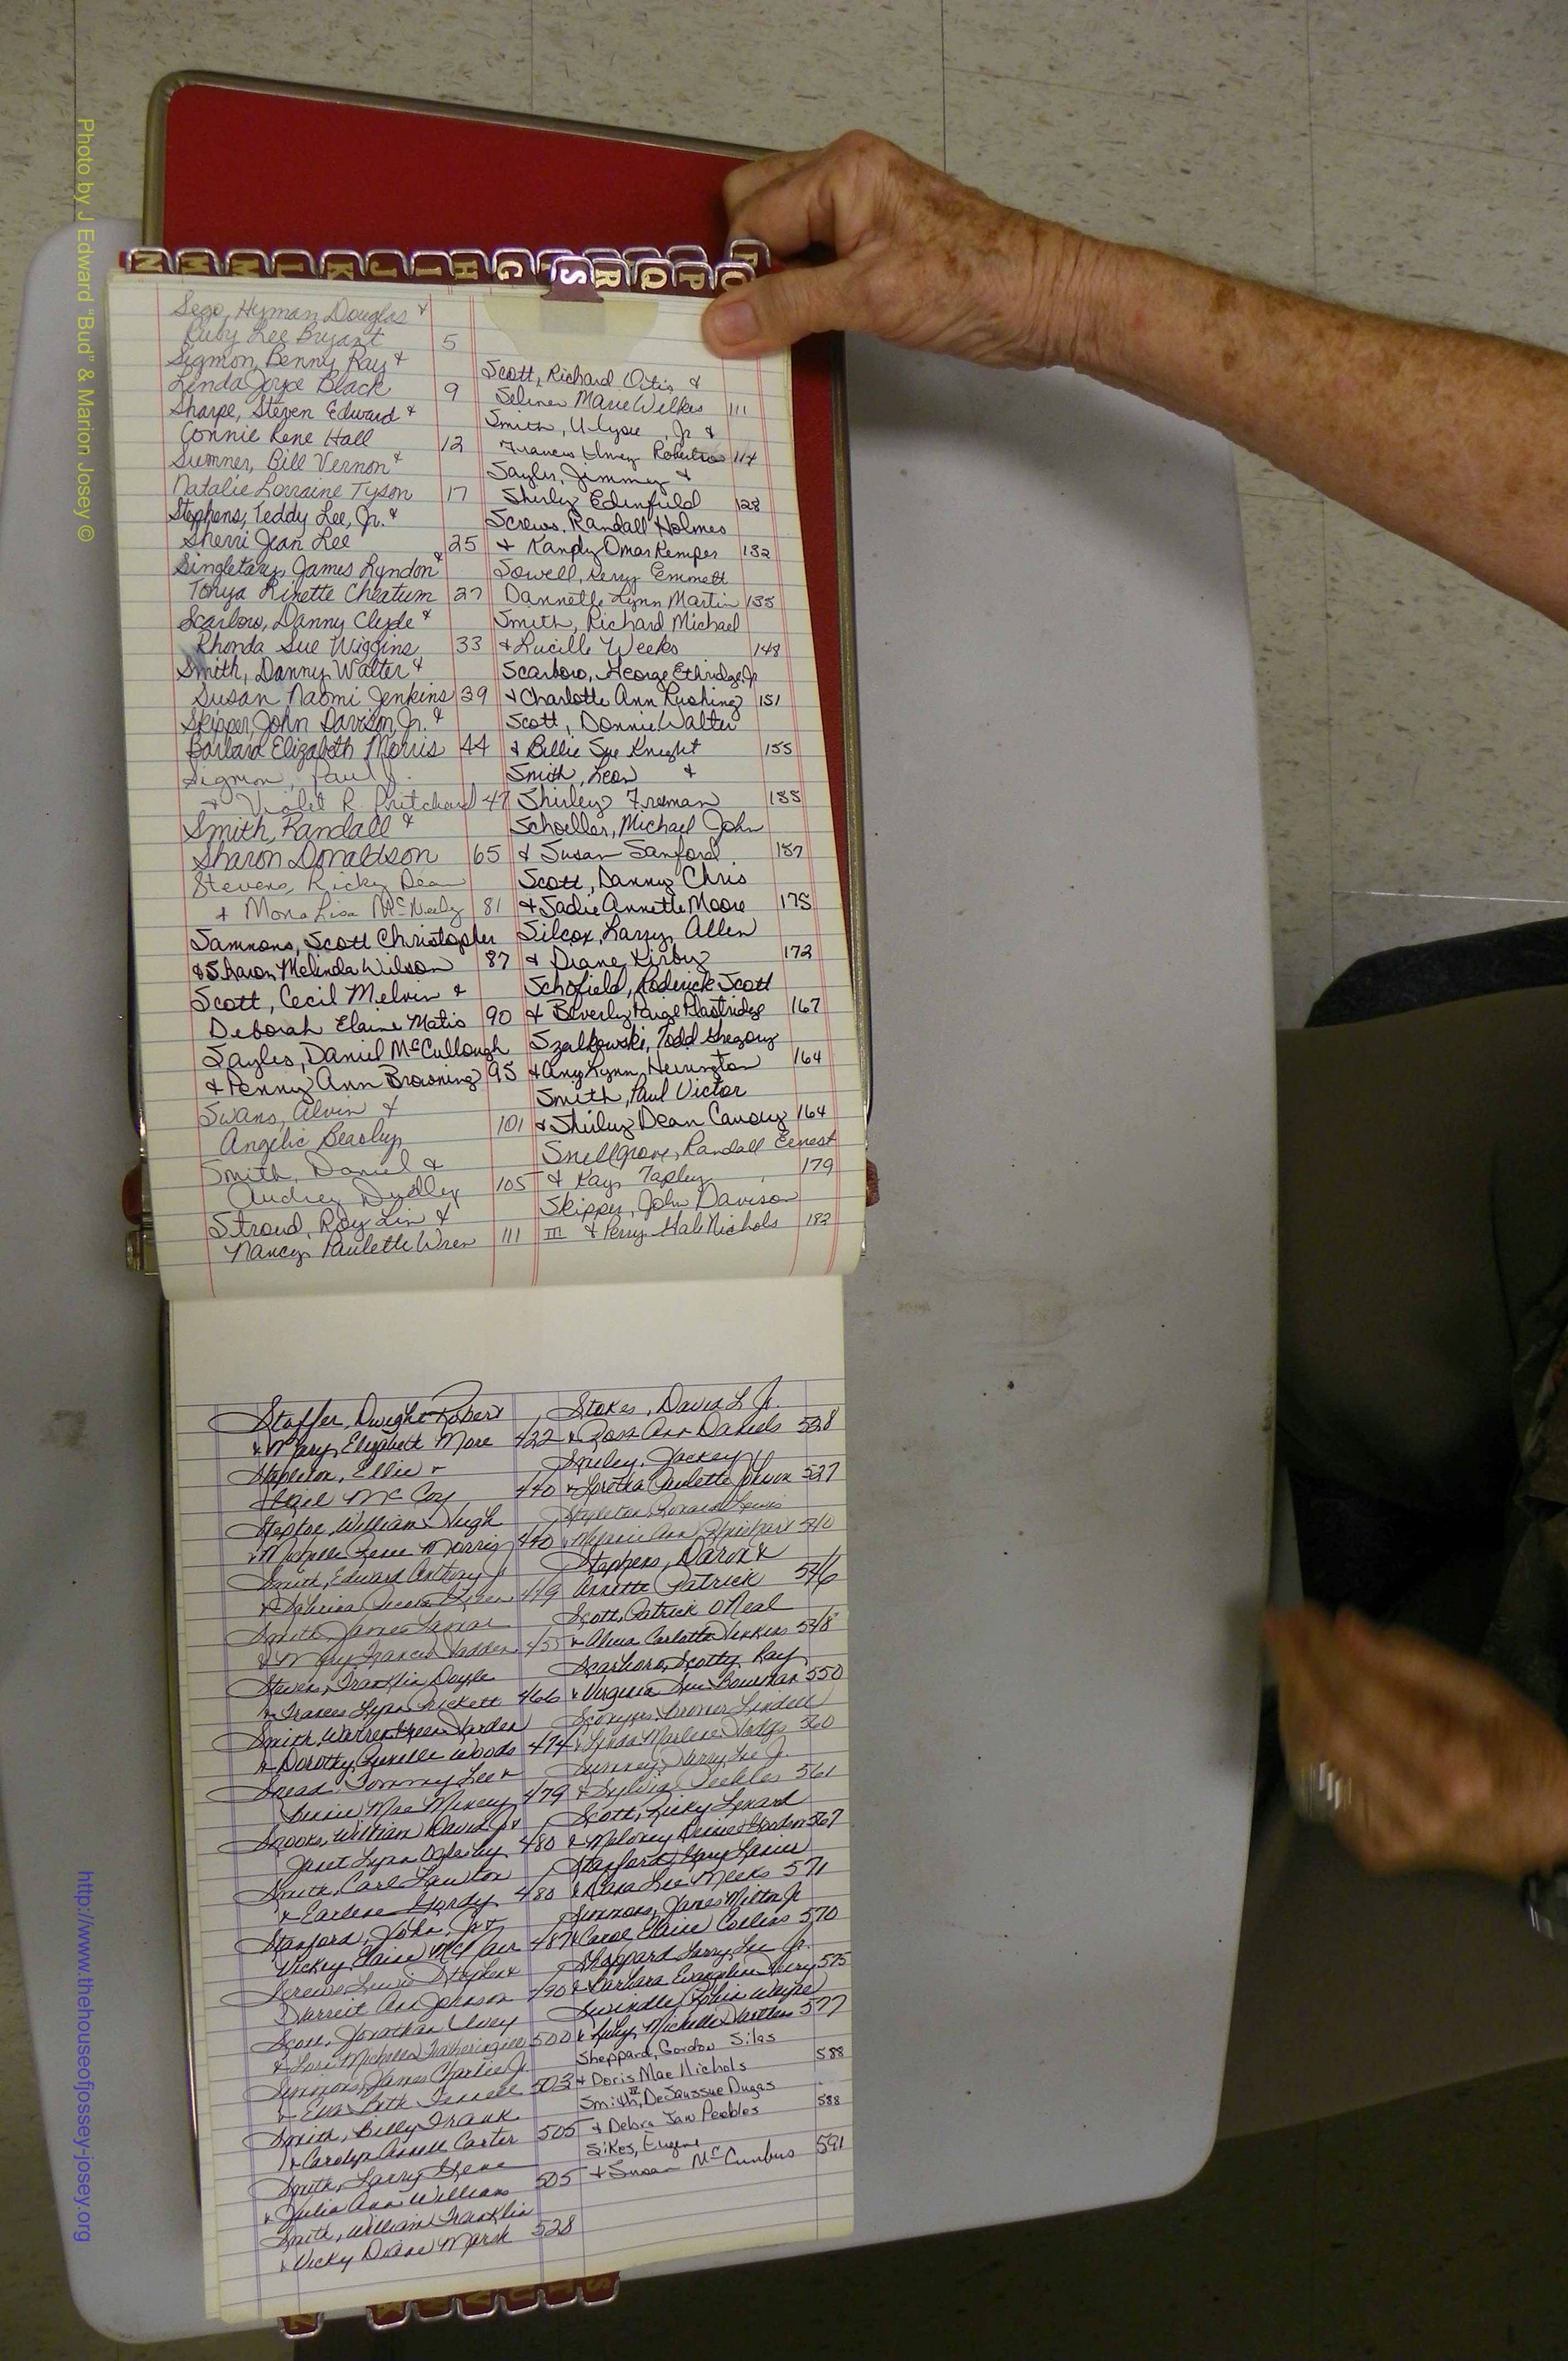 Photo by J Edward "Bud" & Marion Josey ©
N M W L K J I H G S R Q P O
Sego, Hyman Douglas &
Ruby Lee Bryant 5
Sigmon, Benny Ray &
Linda Joyce Black 9
Sharpe, Steven Edward &
Connie Rene Hall 12
Sumner, Bill Vernon &
Natalie Lorraine Tyson 17
Stephens, Teddy Lee, Jr. &
Sherri Jean Lee 25
Singletary, James Lyndon &
Tonya Rinette Cheatum 27
Scarboro, Danny Clyde &
Rhonda Sue Wiggins 33
Smith, Danny Walter &
Susan Naomi Jenkins 39
Skipper, John Davison, Jr. &
Barbara Elizabeth Morris 44
Sigmon, Paul J.
& Violet R. Pritchard 47
Smith, Randall &
Sharon Donaldson 65
Stevens, Ricky Dean
& Mona Lisa McNeely 81
Sammons, Scott Christopher
& Sharon Melinda Wilson 87
Scott, Cecil Melvin &
Deborah Elaine Matis 90
Sayles, Daniel McCullough
& Penny Ann Browning 95
Swans, Alvin &
Angelic Beasley 101
Smith, Daniel &
Audrey Dudley 105
Stroud, Roy Lin &
Nancy Paulette Wren 111
Scott, Richard Otis &
Selina Marie Wilkes 111
Smith, Ulysee, Jr &
Francis Robertson 114
Sayles, Jimmey &
Shirley Edenfield 128
Screws, Randall Holmes
& Kandy Omar Kemper 132
Sowell, Kerry Emmett
Dannette Lynn Martin 135
Smith, Richard Michael
& Lucille Weeks 148
Scarboro, George Ethridge, Jr
& Charlotte Ann Rushing 151
Scott, Donnie Walter
& Billie Sue Knight 155
Smith, Leon &
Shirley Freeman 185
Schoeller, Michael John
& Susan Sanford 187
Scott, Danny Chris
& Sadie Annette Moore 175
Silcox, Larry Allen
& Diane Kirby 172
Schofield, Roderick Scott
& Beverly Paige Hastridge 167
Szalkowski, Todd Gregory
& Amy Lynn Herrington 164
Smith, Paul Victor
& Shirley Dean Canouy 164
Snellgrove, Randall Ernest
& Kay Tapley 179
Skipper, John Davison
III & Perry Gale Nichols 182
Stoffer, Dwight Robert
& Mary Elizabeth More 422
Stapleton, Ellie &
McCoy 440
Steptoe, William Hugh
& Michelle Renee Morris 440
Smith, Edward Anthony Jr
& Sabrina 449
Smith, James Lamar
& Mary Frances Hadden 455
Stevens, Franklin Doyle
& Frances Lynn Rickett 466
Smith, Warren Green Harden
& Dorothy Woods 474
Snead, Tommy Lee &
Mae Mincey 479
Snooks, William David Jr &
Janet Lynn Oglesby 480
Smith, Carl Lawton
& Earlene Hordy 480
Stanford, John, Jr &
Vickey Elaine McNair 487
Screws, Lewis Stephen &
Ann Johnson 490
Scott, Jonathan Ivey
& Lori Michelle Featheringill 500
Simmons, James Charlie Jr.
& Eva Beth Terrell 503
Smith, Billy Frank
& Carolyn Carter 505
Smith, Larry Gene
& Julia Ann Williams 505
Smith, William Franklin
& Vicky Diane Marsh 528
Stokes, David L Jr.
& Rose Ann Daniels 528
Smiley, Jackey
& Loretha Paulette Johnson 527
Stapleton, Ronald Lewis
& Ann Rhinehart 540
Stephens, Daron &
Annette Patrick 546
Scott, Patrick ONeal
& Alicia Carlotta Jenkins 548
Scarboro, Scotty Ray
& Virginia Sue Bowman 550
Scruggs, Lindell
& Linda Marlene Hodges 560
Sumner, Harry Lee Jr.
& Sylvia Peebles 561
Scott, Ricky Lenard
& Meloney Gordon 567
Stanford, Gary Lanier
& Dana Lee Meeks 571
Simmons, James Milton Jr
& Carol Elaine Collins 570
Sheppard, Larry Lee Jr.
& Barbara Evangeline 575
Swindle, Robin Wayne
& Michelle 577
Sheppard, Gordon Silas
& Doris Mae Nichols 588
Smith, DeSaussue Dugas II
& Debra Jan Peebles 588
Sikes, Eugene
& Susan McCumbus 591
http://www.thehouseofjossey-josey.org